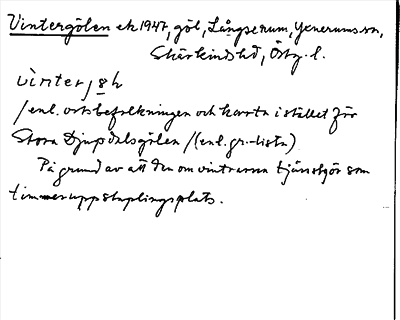 Vintergölen ek 1947, göl, Långserum, Yxnerums sn,
Skärkinds hd, Östg. l.
vìnterjø̀ḷ
/enl. ortsbefolkningen och karta i stället för
Stora Djupdalsgölen /(enl. gr.-lista)
På grund av att den om vintrarna tjänstgör som
timmeruppstaplingsplats.